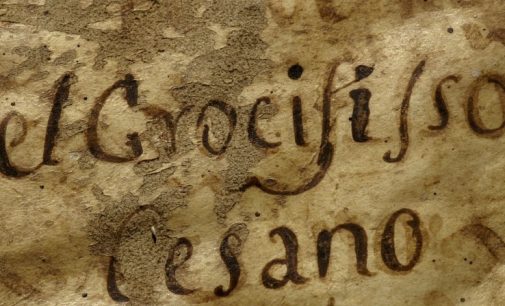 el Crocifisso
Cesano